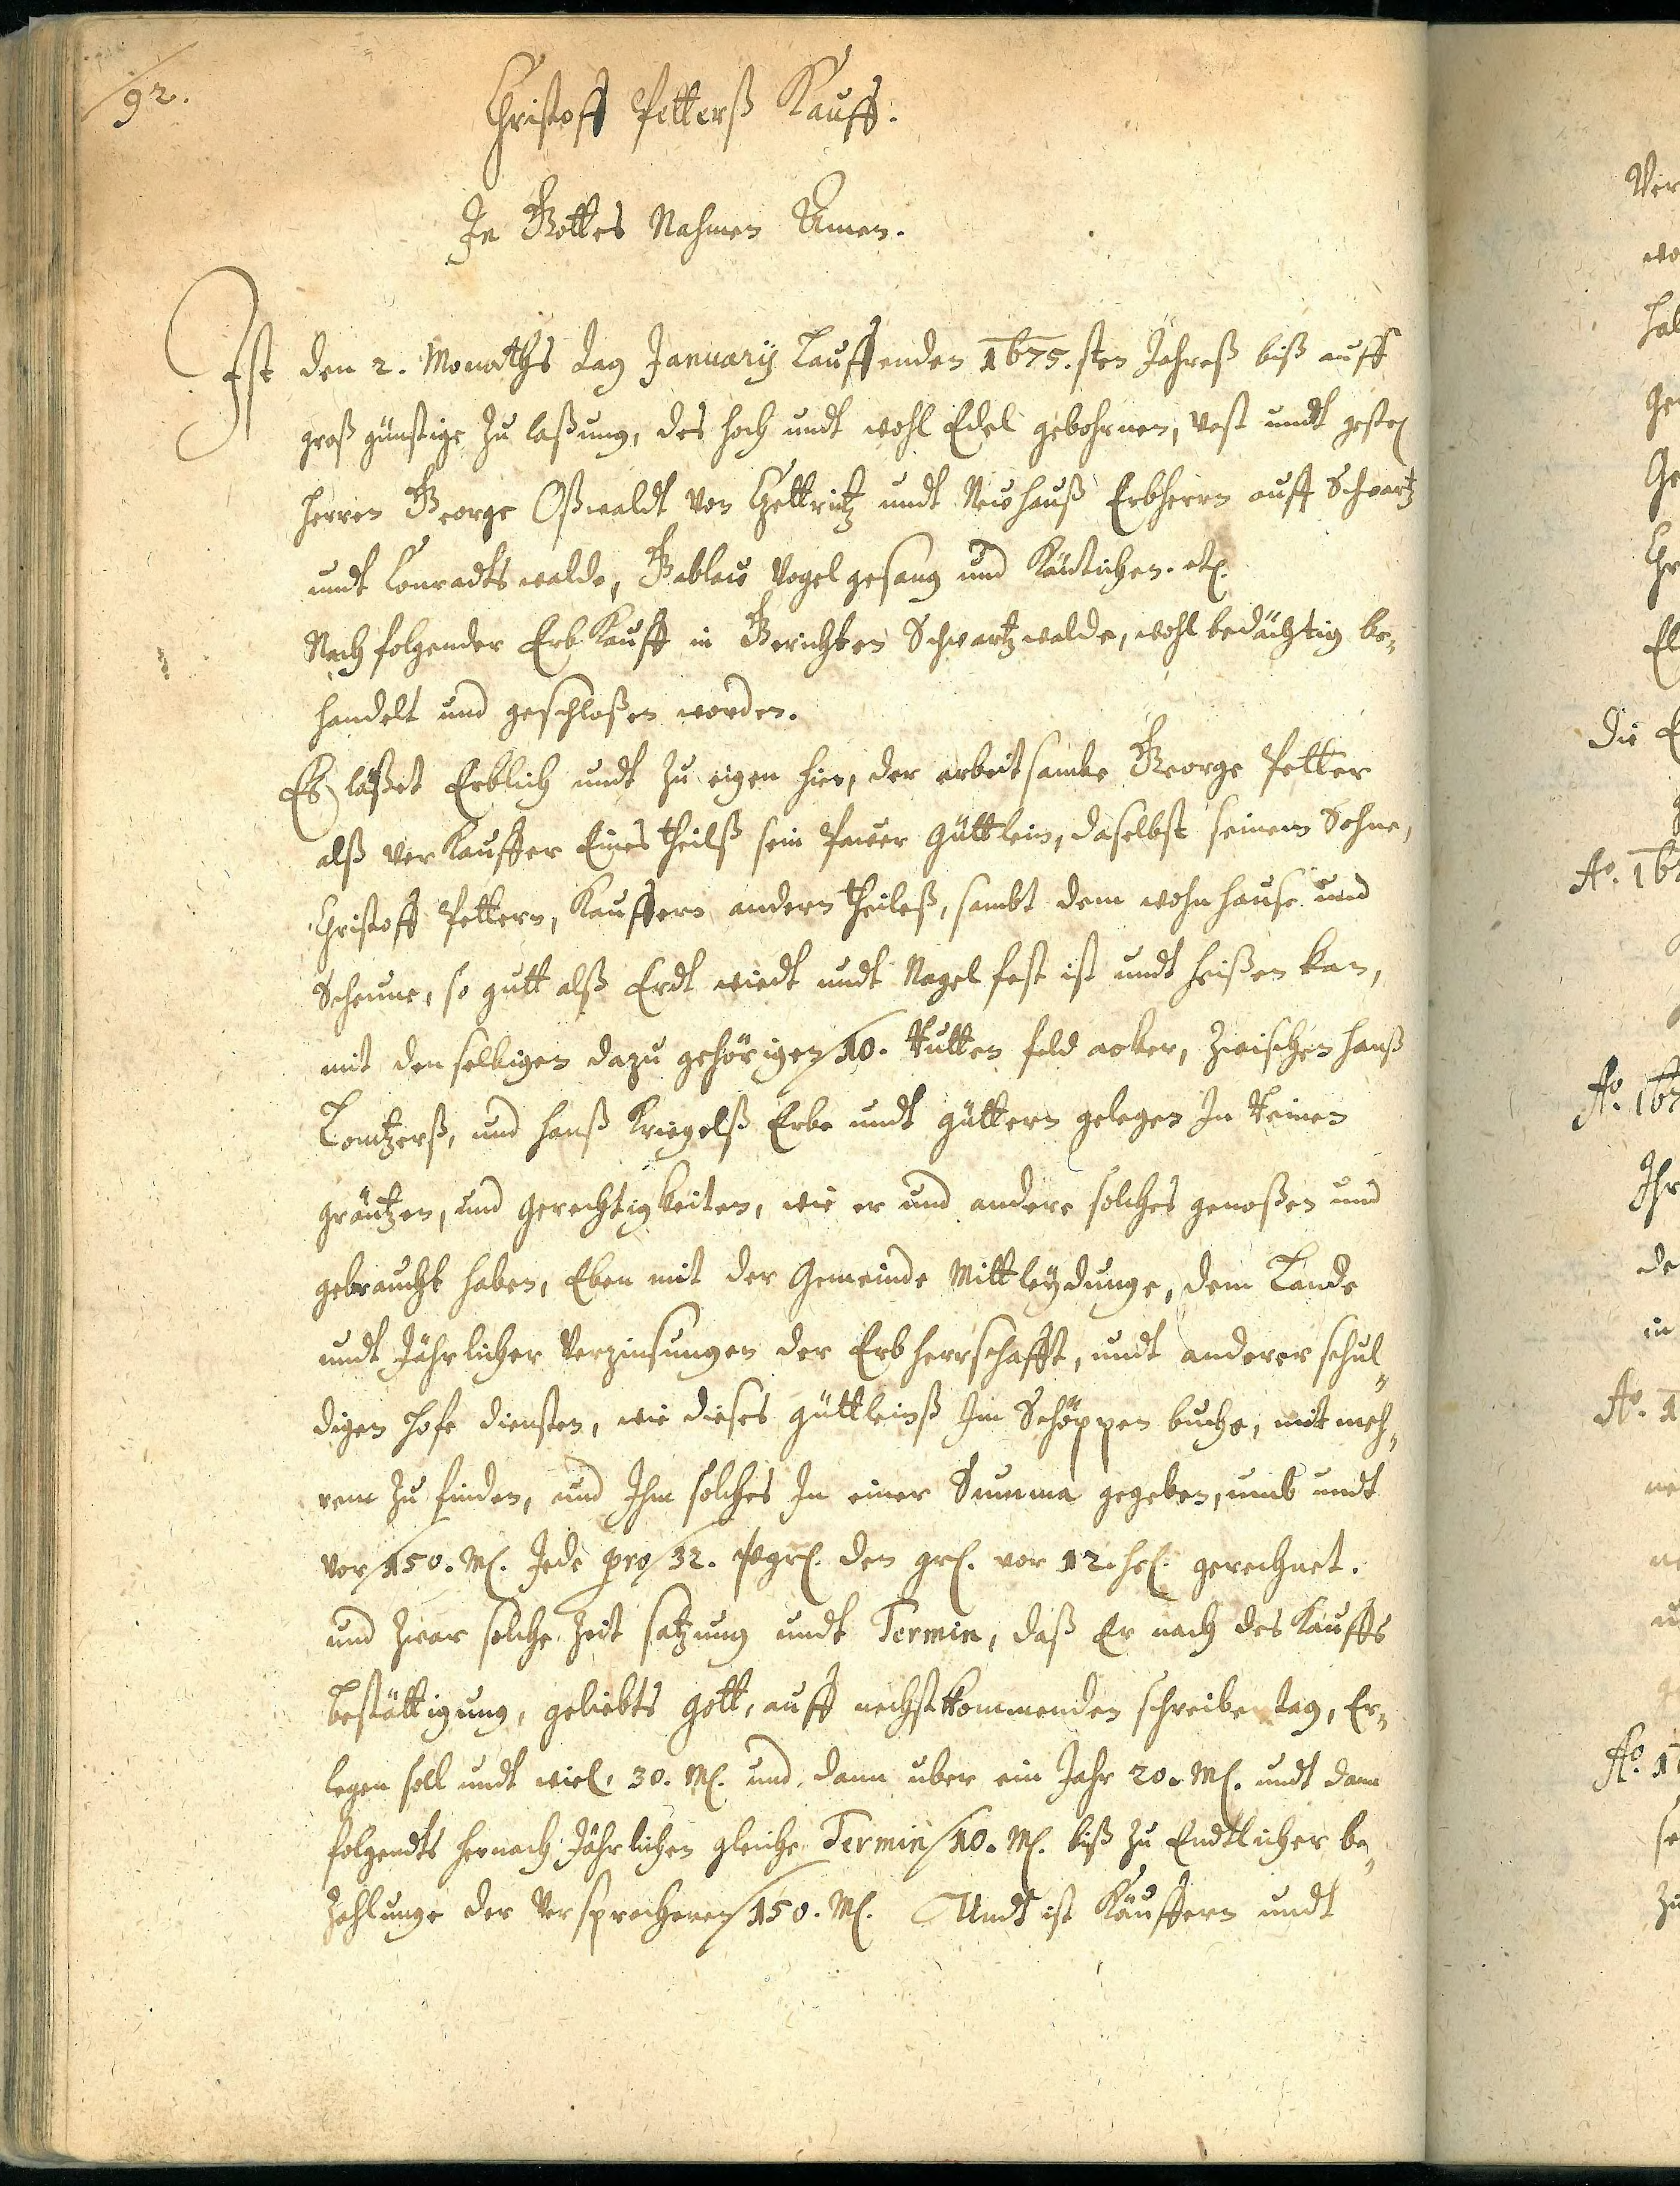 92.
Christoff Petterß Kauff.
In Gottes Nahmen Amen.
Ist den 2. Monaths Tag January Lauffenden 1675.sten Jahreß biß auff
groß günstige Zu laßung, des hoch undt wohl Edel gebohrnen, Vest undt
Herren George Oßwaldt von Tzettritz undt Newhauß Erbherrn auff Schwartz
undt Conradts walde, Gablaw Vogel gesang und etc.
Nach folgender Erb Kauff in Gerichten Schwartzwalde, wohl bedächtig be„
handelt und geschloßen worden.
Es läßet Erblich undt Zu eigen hin, der arbeitsambe George Petter
alß verKauffer Eines theilß sein Pauer Güttlein, daselbst seinem Sohne,
Christoff Pettern, Kauffern andern theileß, sambt dem wohnhause und
Scheune, so gutt alß Erdt wiedt undt Nagel fest ist undt heißen kan,
mit denselbigen dazu gehörigen 10. Rutten feld acker, Zwischen Hanß
und Hanß Kriegelß Erbe undt güttern gelegen In Reinen
gräntzen, und gerechtigkeiten, wie er und andere solches genoßen und
gebraucht haben, Eben mit der Gemeinde Mittleydunge, dem Lande
undt Jährlicher Verzinsungen der Erbherrschafft, undt anderer schul„
digen Hofe diensten, wie dieses güttleinß Im Schöppen buche, mit meh„
rem Zu finden, und Ihm solches In einer Summa gegeben, umb undt
vor 150. M. Jede pro 32. gr. den gr. vor 12. hl. gerechnet.
und Zwar solche Zeit satzung undt Termin, daß Er nach des Kauffs
bestättigung, geliebts gott, auff nechst kommenden schreibe tag, Er„
legen soll undt wiel, 30. M. und dann uber ein Jahr 20. M. undt dann
folgendts hernach Jährlichen gleiche Termin 10. M. biß Zu Endtlicher be„
Zahlunge der Versprochenen 150. M. Undt ist Käuffern undt
Ver
wo
hab
Ge
Ge
Chr
El
Die E
Ao. 16
Ao. 167
Ihr
de
in
Ao. 1
Ao. 1
se
zu